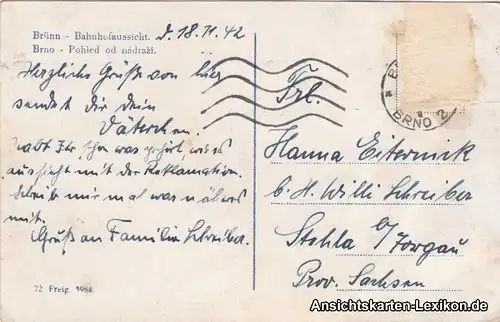 Brünn - Bahnhofaussicht. d. 18.11.42
Brno - Pohled od nádraží.
Herzliche Grüße von hier
sendet dir dein
Väterchen.
Habt Ihr schon was gehört, wie es
aussieht mit der Reklamation.
Schreibt mir mal was näheres
mit.
Gruß an Familie Schreiber.
72 Freig. 5984
BRNO 2
Frl.
Hanna Eiternick
b. H. Willi Schreiber
Stehla b/Torgau
Prov. Sachsen
Ansichtskarten-Lexikon.de